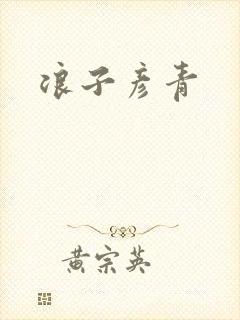 浪子彦青
黄宗英